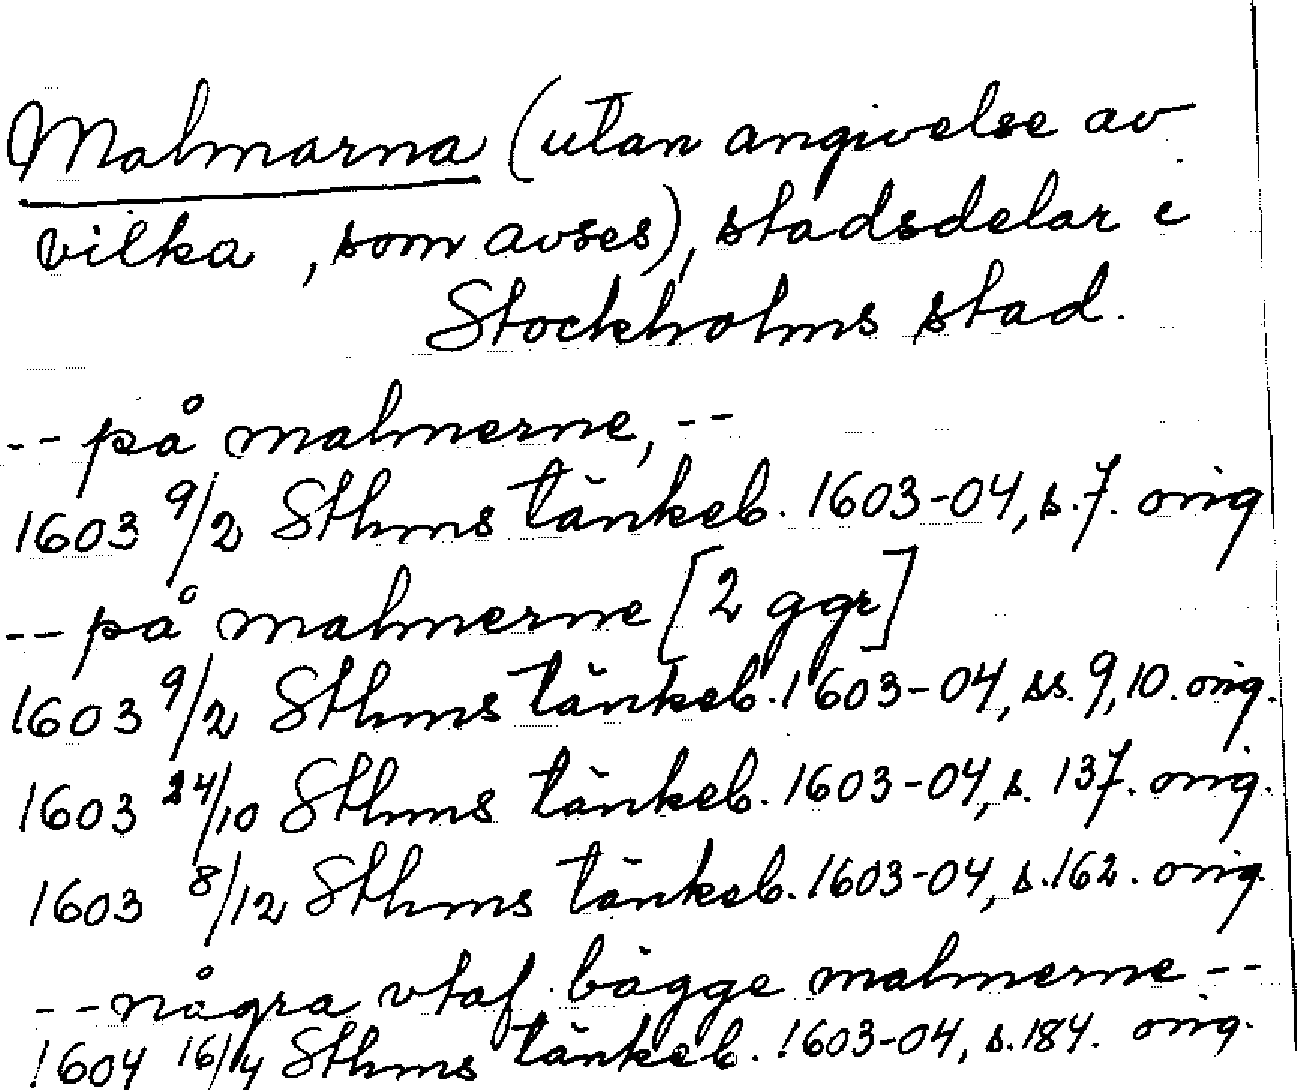 Malmarna (utan angivelse av
vilka, som avses), stadsdelar i
Stockholms stad.
-- på malmerne, --
1603 9/2 Sthms tänkeb. 1603-04, s. 7. orig
-- på malmerne [2 ggr]
1603 9/2 Sthms tänkeb. 1603-04, ss. 9, 10. orig.
1603 24/10 Sthms tänkeb. 1603-04, s. 137. orig.
1603 8/12 Sthms tänkeb. 1603-04, s. 162. orig.
-- några vtaf bägge malmerne --
1604 16/4 Sthms tänkeb. 1603-04, s. 184. orig.